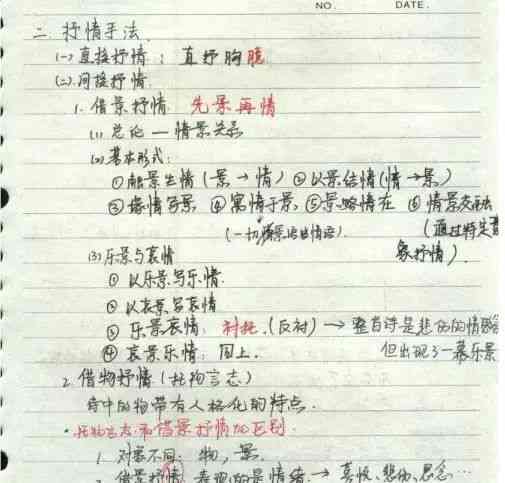 NO. DATE.
二、抒情手法
(一) 直接抒情：直抒胸臆
(二) 间接抒情
1. 借景抒情 先景再情
(1) 总论 — 情景关系
(2) 基本形式：
① 融景生情 (景→情) ② 以景结情 (情→景)
③ 缘情写景 ④ 寓情于景 ⑤ 景略情在 ⑥ 情景交融
(一切景语皆情语) (通过特定意
象抒情)
(3) 乐景与哀情
① 以乐景写乐情
② 以哀景写哀情
③ 乐景哀情：衬托 (反衬) → 整首诗是悲伤的情感
④ 哀景乐情：同上. 但出现了一幕乐景
2. 借物抒情 (托物言志)
诗中的物带有人格化的特点.
·托物言志和借景抒情的区别
1. 对象不同：物，景.
2. 借景抒情 表现的是情绪 → 喜悦、悲伤、思念…